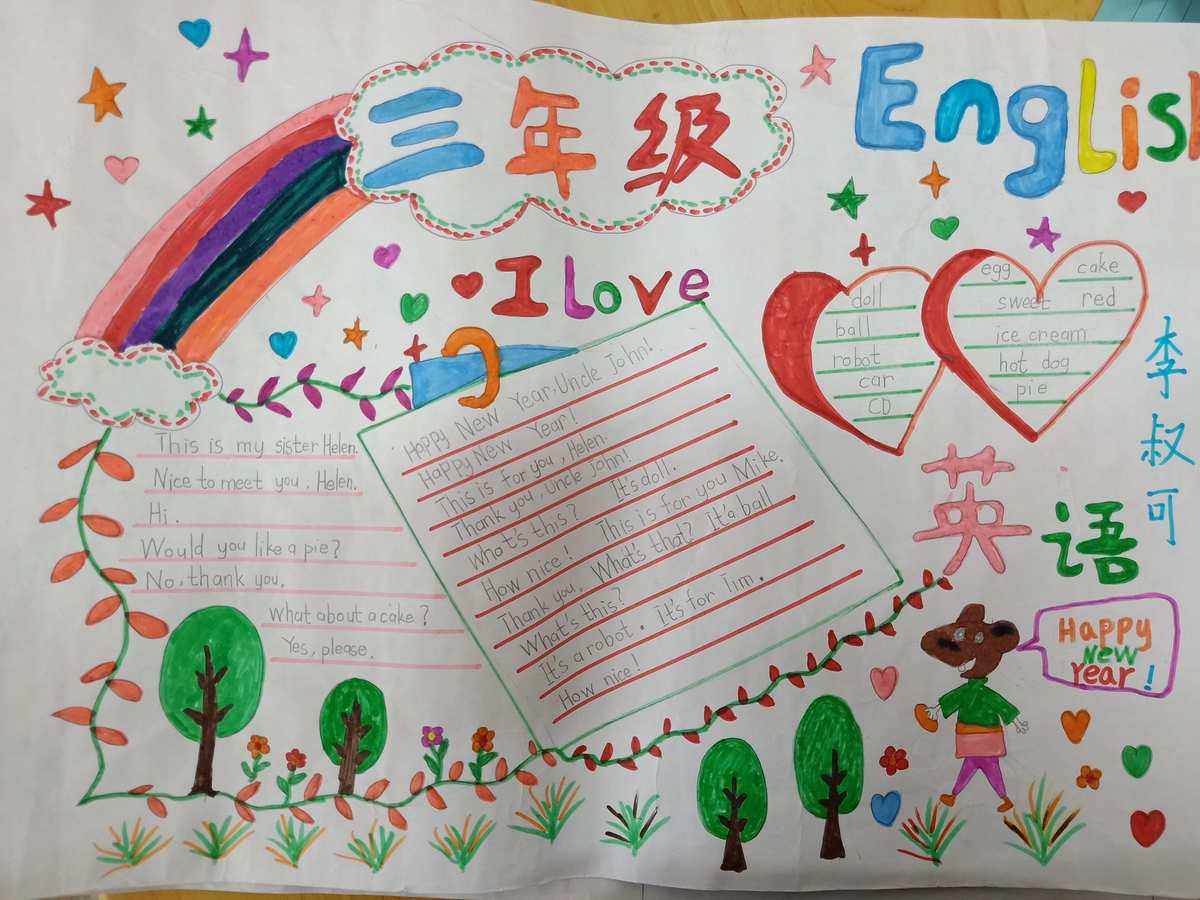 三年级
English
I Love
This is my sister Helen.
Nice to meet you. Helen.
Hi.
Would you like a pie?
No, thank you.
What about a cake?
Yes, please.
Happy New Year, Uncle John!
Happy New Year!
This is for you, Helen.
Thank you, Uncle John!
What's this? It's doll.
How nice! This is for you Mike.
Thank you. What's that? It's a ball
What's this?
It's a robot. It's for Tim.
How nice!
doll
ball
robot
car
CD
egg cake
sweet red
ice cream
hot dog
pie
李叔可
英语
Happy
New
Year!